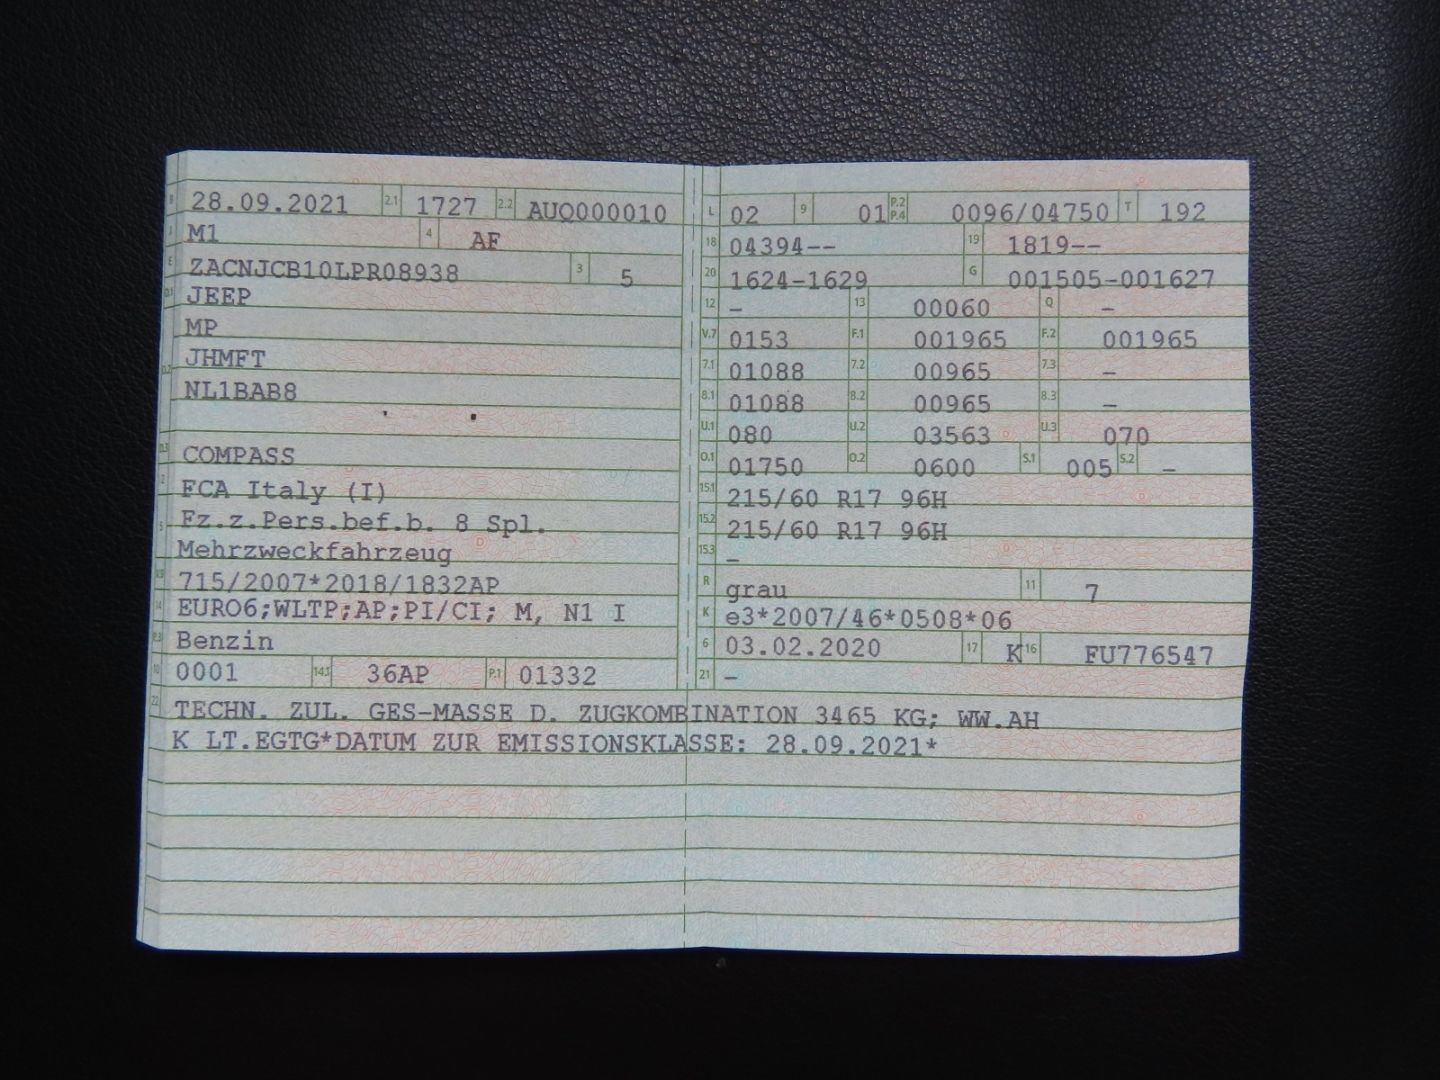 B 28.09.2021 2.1 1727 2.2 AUO000010
J M1 4 AF
E ZACNJCB10LPR08938 3 5
D.1 JEEP
MP
D.2 JHMFT
NL1BAB8
D.3 COMPASS
2 FCA Italy (I)
5 Fz.z.Pers.bef.b. 8 Spl.
Mehrzweckfahrzeug
V.9 715/2007*2018/1832AP
14 EURO6;WLTP;AP;PI/CI; M, N1 I
P.3 Benzin
10 0001 14.1 36AP P.1 01332
L 02 9 01 P.2 P.4 0096/04750 T 192
18 04394-- 19 1819--
20 1624-1629 G 001505-001627
12 - 13 00060 Q -
V.7 0153 F.1 001965 F.2 001965
7.1 01088 7.2 00965 7.3 -
8.1 01088 8.2 00965 8.3 -
U.1 080 U.2 03563 U.3 070
O.1 01750 O.2 0600 S.1 005 S.2 -
15.1 215/60 R17 96H
15.2 215/60 R17 96H
15.3 -
R grau 11 7
K e3*2007/46*0508*06
6 03.02.2020 17 K 16 FU776547
21 -
22 TECHN. ZUL. GES-MASSE D. ZUGKOMBINATION 3465 KG; WW.AH
K LT.EGTG*DATUM ZUR EMISSIONSKLASSE: 28.09.2021*